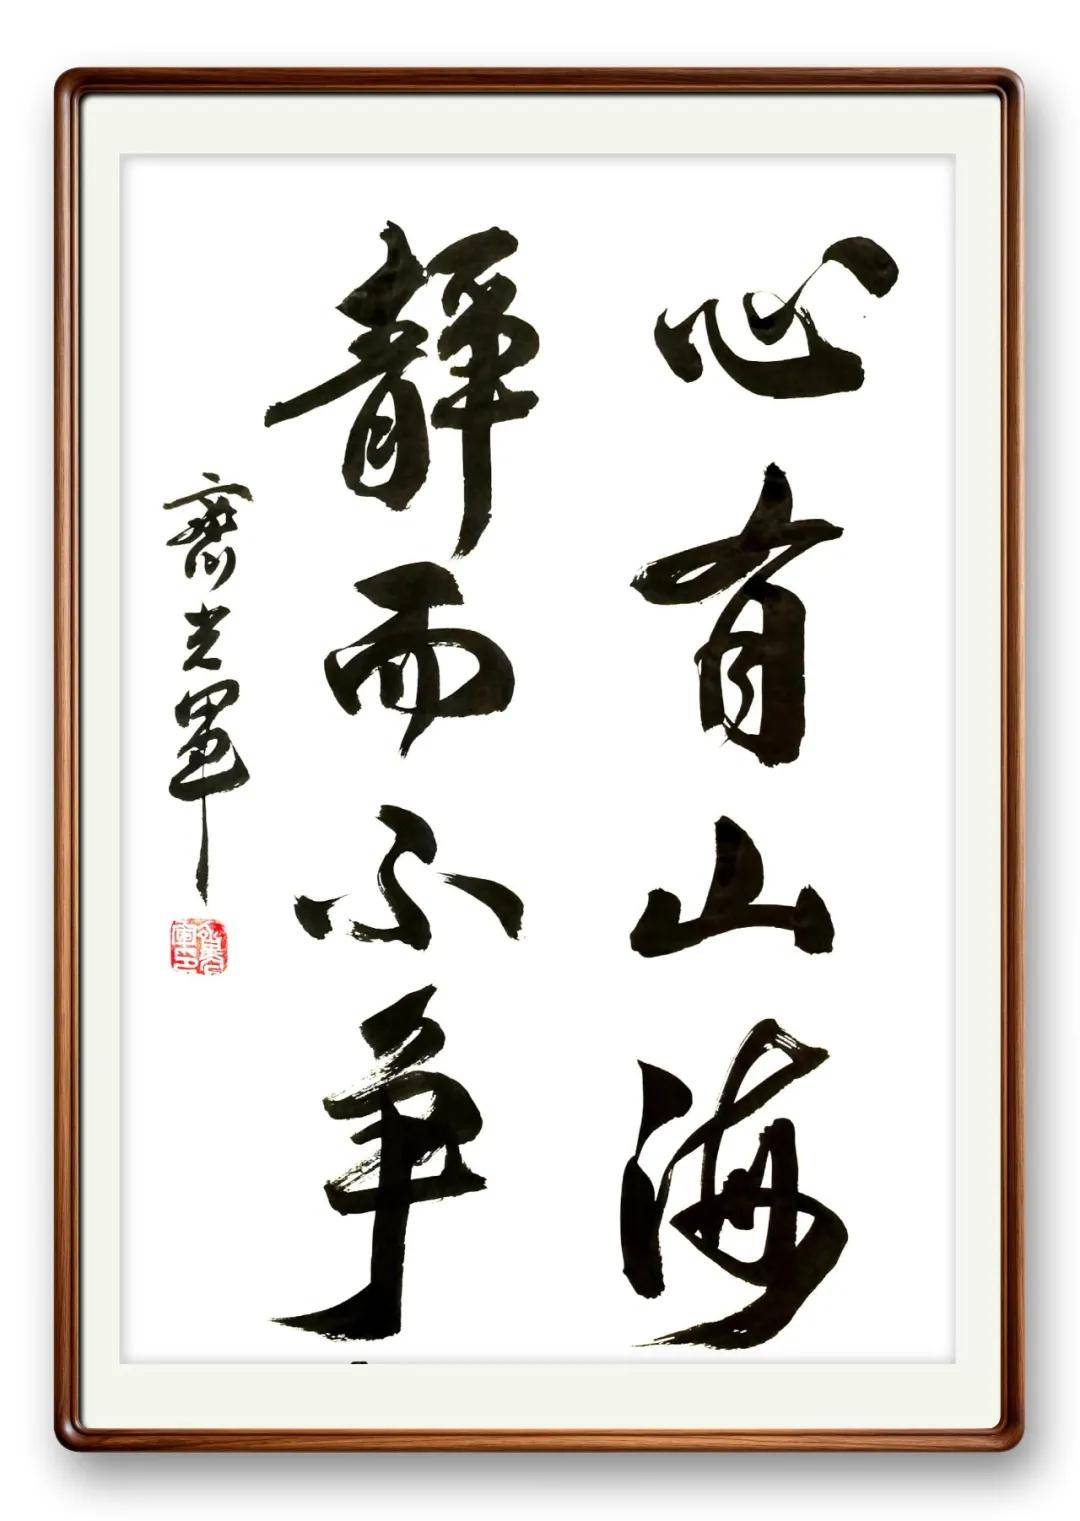 心有山海
静而不争
齐光军